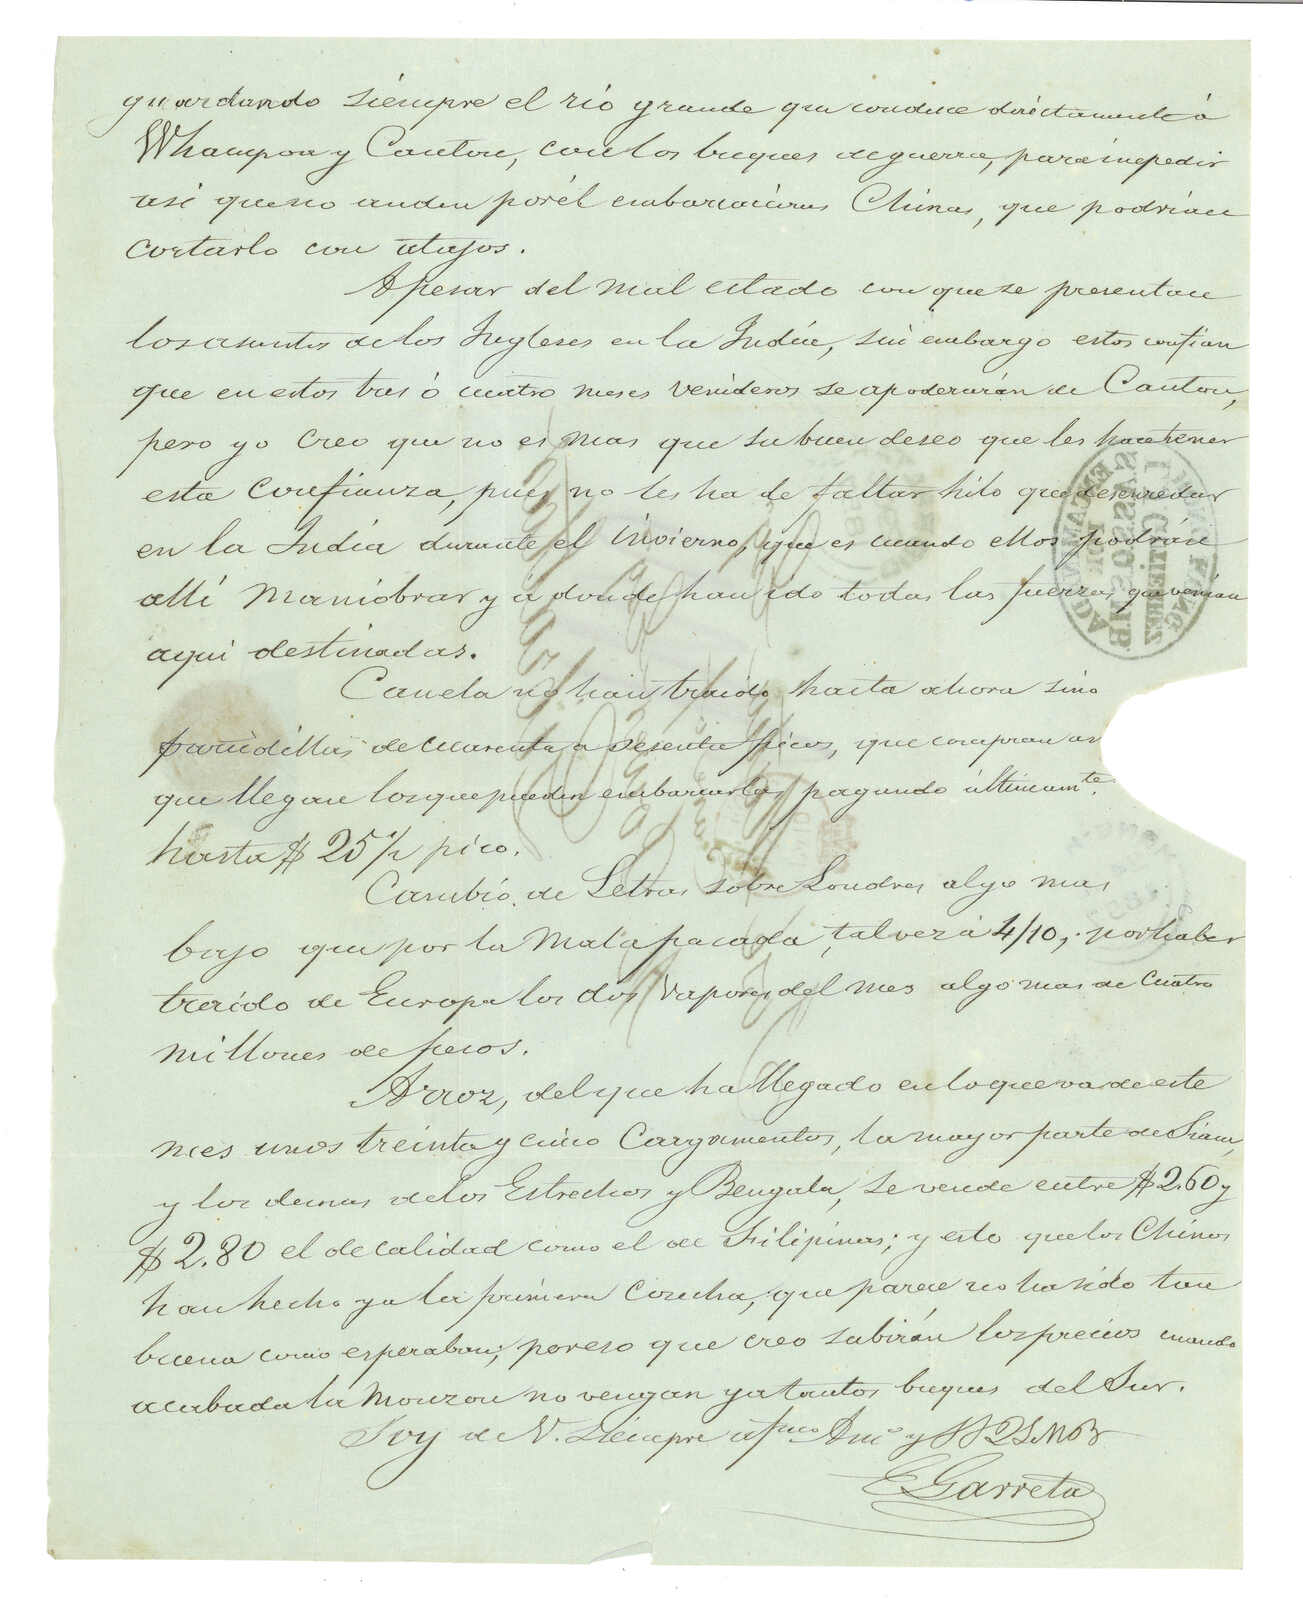 guardando siempre el rio grande que conduce diréctamente á
Whampoa y Canton, con los buques de guerra, para impedir
asi que no anden por él embarcaciones Chinas, que podrian
cortarlo con atajos.
Apesar del mal estado con que se presentan
los asuntos de los Ingleses en la India, sin embargo estos confian
que en estos tres ó cuatro meses venideros se apoderarán de Canton,
pero yo creo que no es mas que su buen deseo que les hace tener
esta confianza, pues no les ha de faltar hilo que desenredar
en la India durante el invierno, que es cuando ellos podrán
alli maniobrar y á donde han ido todas las fuerzas que venian
aqui destinadas.
Canela no han traido hasta ahora sino
partidillas de cuarenta a sesenta picos, que compran
que llegan los que pueden embarcarlas pagando últimamte.
hasta $ 25 1/2 pico.
Cambio de Letras sobre Londres algo mas
bajo que por la Mala pasada, talvez á 4/10, por haber
traido de Europa los dos vapores del mes algo mas de cuatro
millones de pesos.
Arroz, del que ha llegado en lo que va de este
mes unos treinta y cinco cargamentos, la mayor parte de Siam,
y los demas de los Estrechos y Bengala, se vende entre $ 2.60 y
$ 2.80 el de calidad como el de Filipinas; y esto que los Chinos
han hecho ya la primera cosecha, que parece no ha sido tan
buena como esperaban; por eso que creo subirán los precios cuando
acabada la Monzon no vengan ya tantos buques del Sur.
Soy de V. siempre afmo Amo y SS QSMB
E Garreta